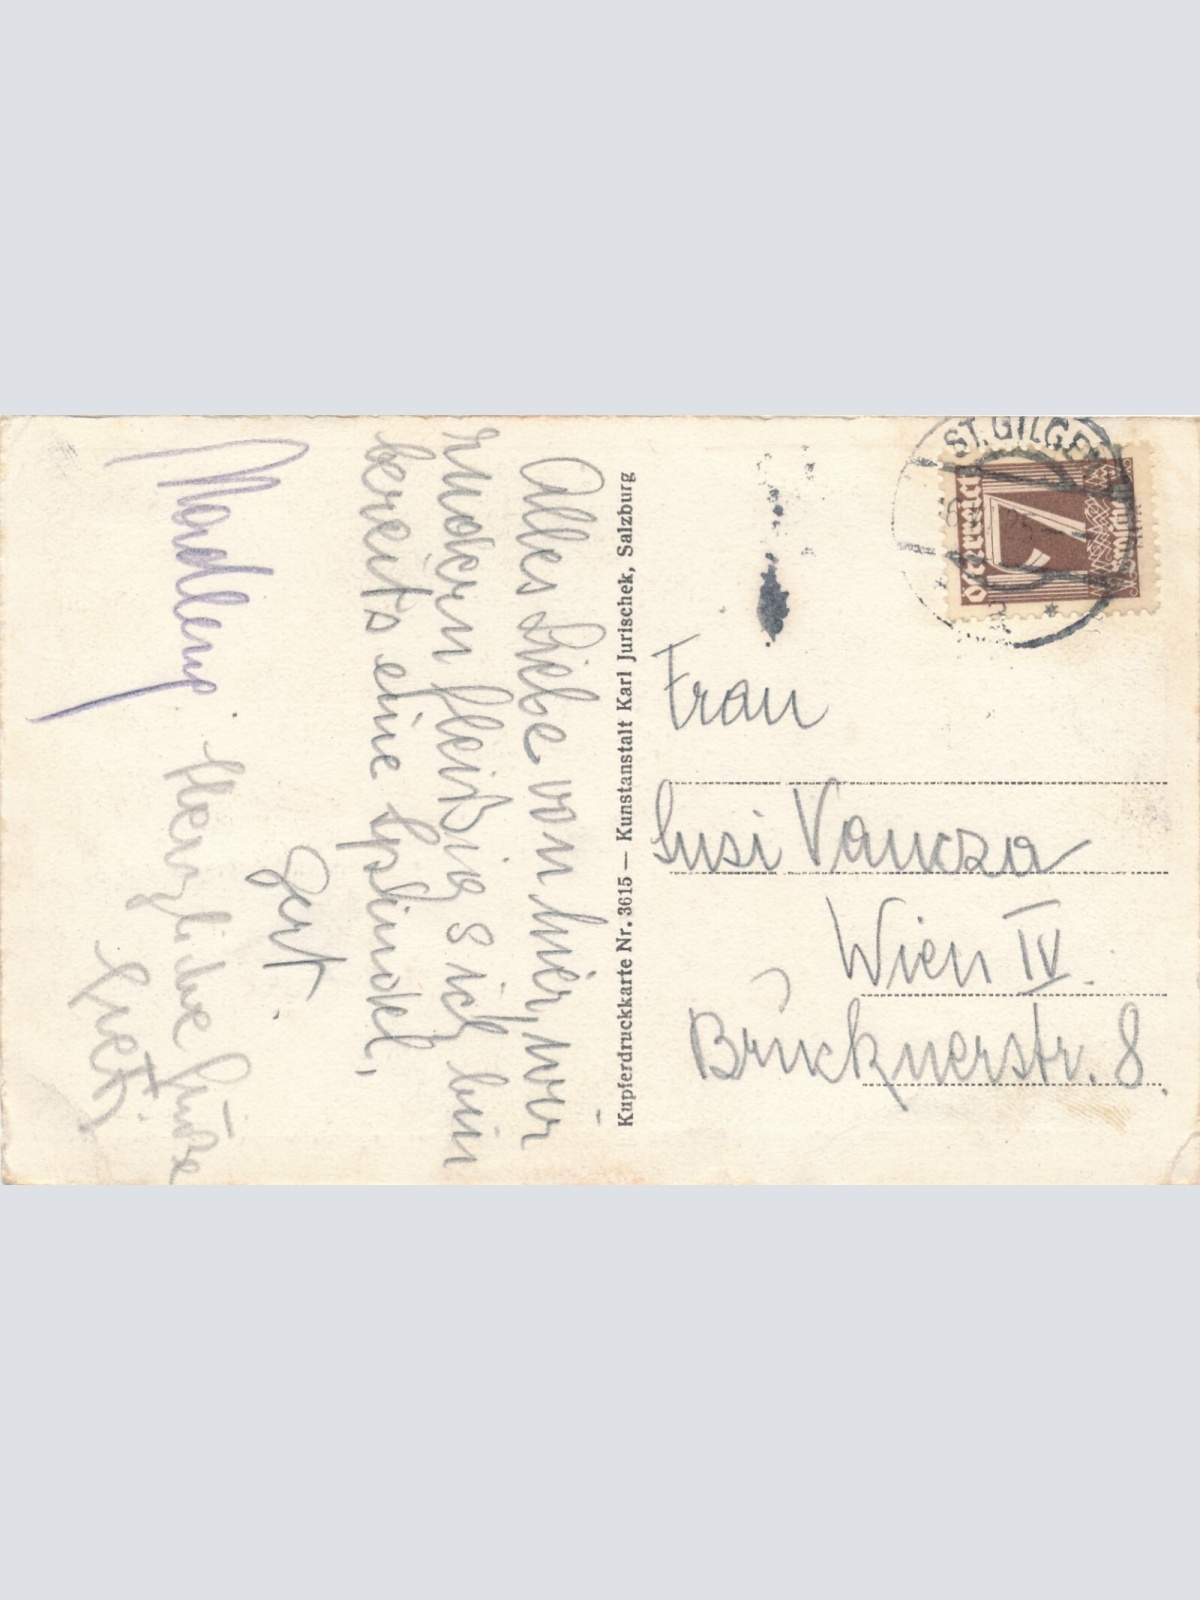 Alles Liebe von hier, wir
rudern fleißig & ich bin
bereits eine Spindel,
Gert.
Herzliche Grüße
Kupferdruckkarte Nr. 3615 — Kunstanstalt Karl Jurischek, Salzburg
ST. GILGEN
Österreich
7
Groschen
Frau
Susi Vancza
Wien IV.
Brucknerstr. 8.